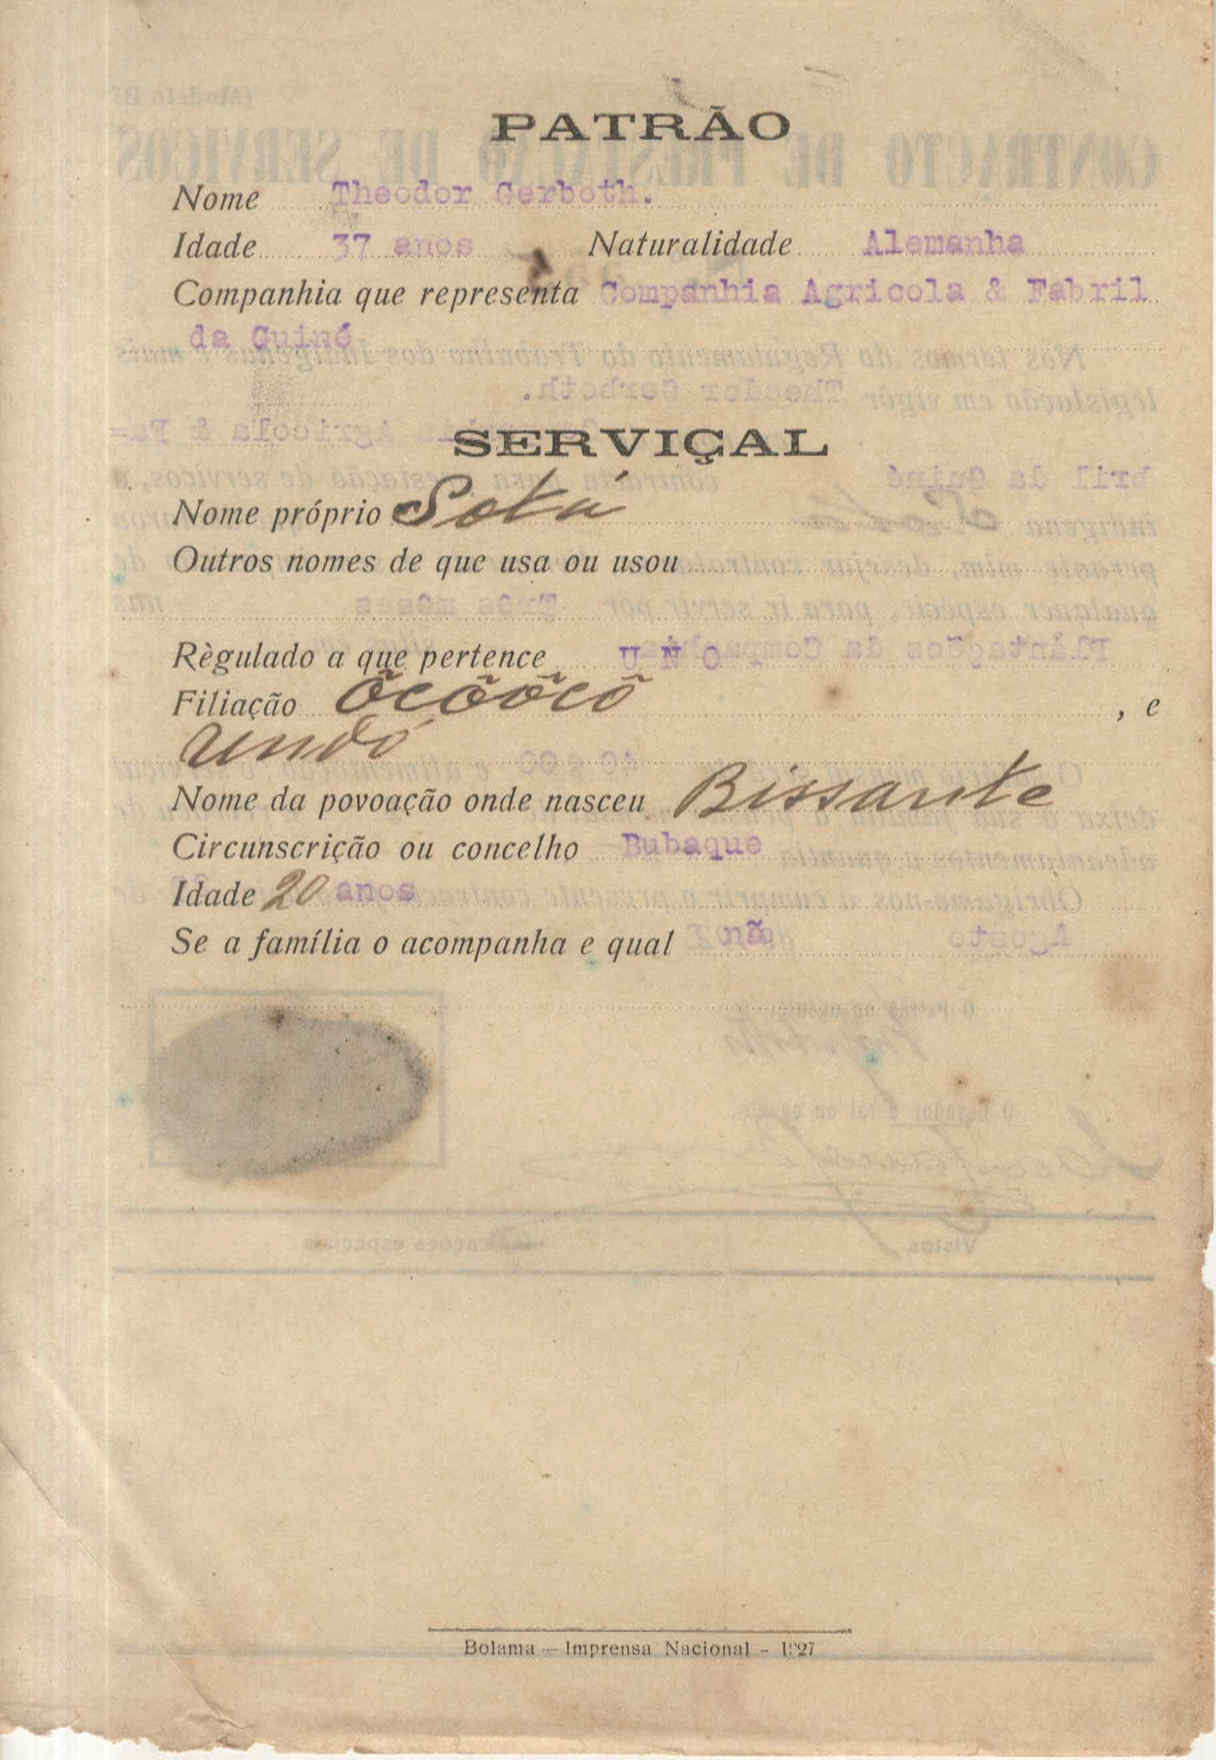 PATRÃO
Nome Theodor Gerboth.
Idade 37 anos Naturalidade Alemanha
Companhia que representa Companhia Agricola & Fabril
da Guiné
SERVIÇAL
Nome próprio Sotú
Outros nomes de que usa ou usou
Règulado a que pertence U N O
Filiação Õcõõcõ, e
Undó
Nome da povoação onde nasceu Bissante
Circunscrição ou concelho Bubaque
Idade 20 anos
Se a família o acompanha e qual não
Bolama — Imprensa Nacional - 1927